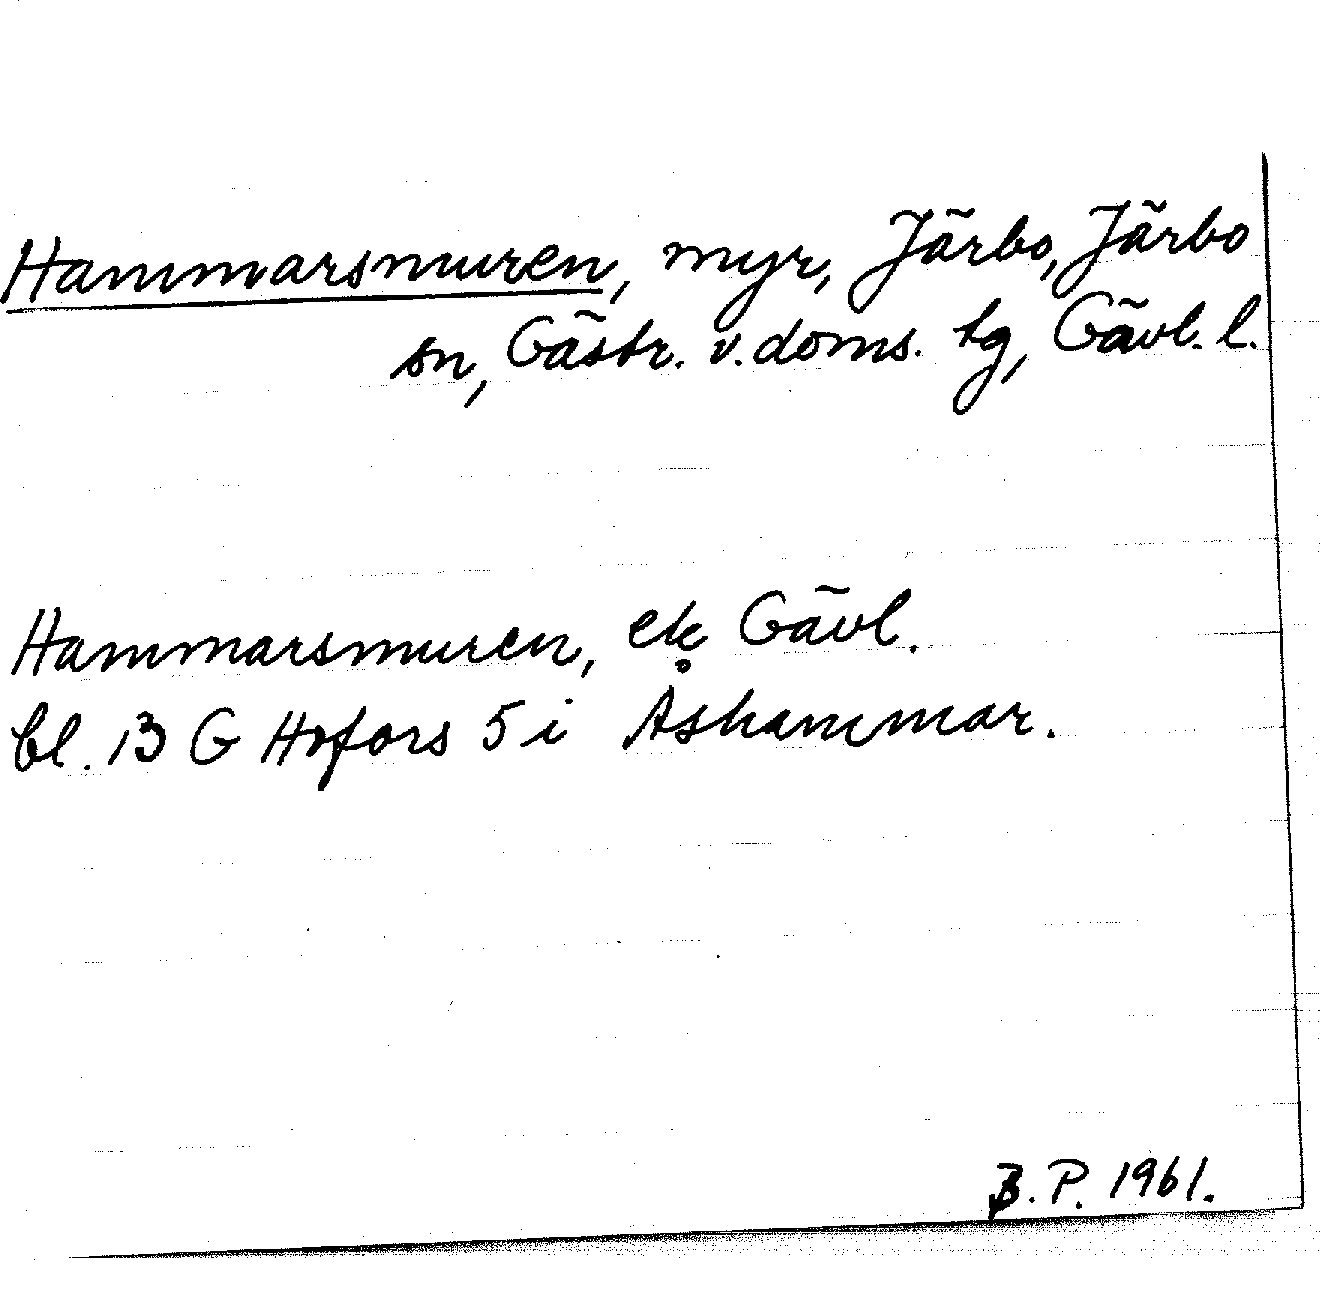 Hammarsmuren, myr, Järbo, Järbo
sn, Gästr. v. doms. tg, Gävl. l.
Hammarsmuren, ek Gävl.
bl. 13 G Hofors 5 i Åshammar.
B. P. 1961.